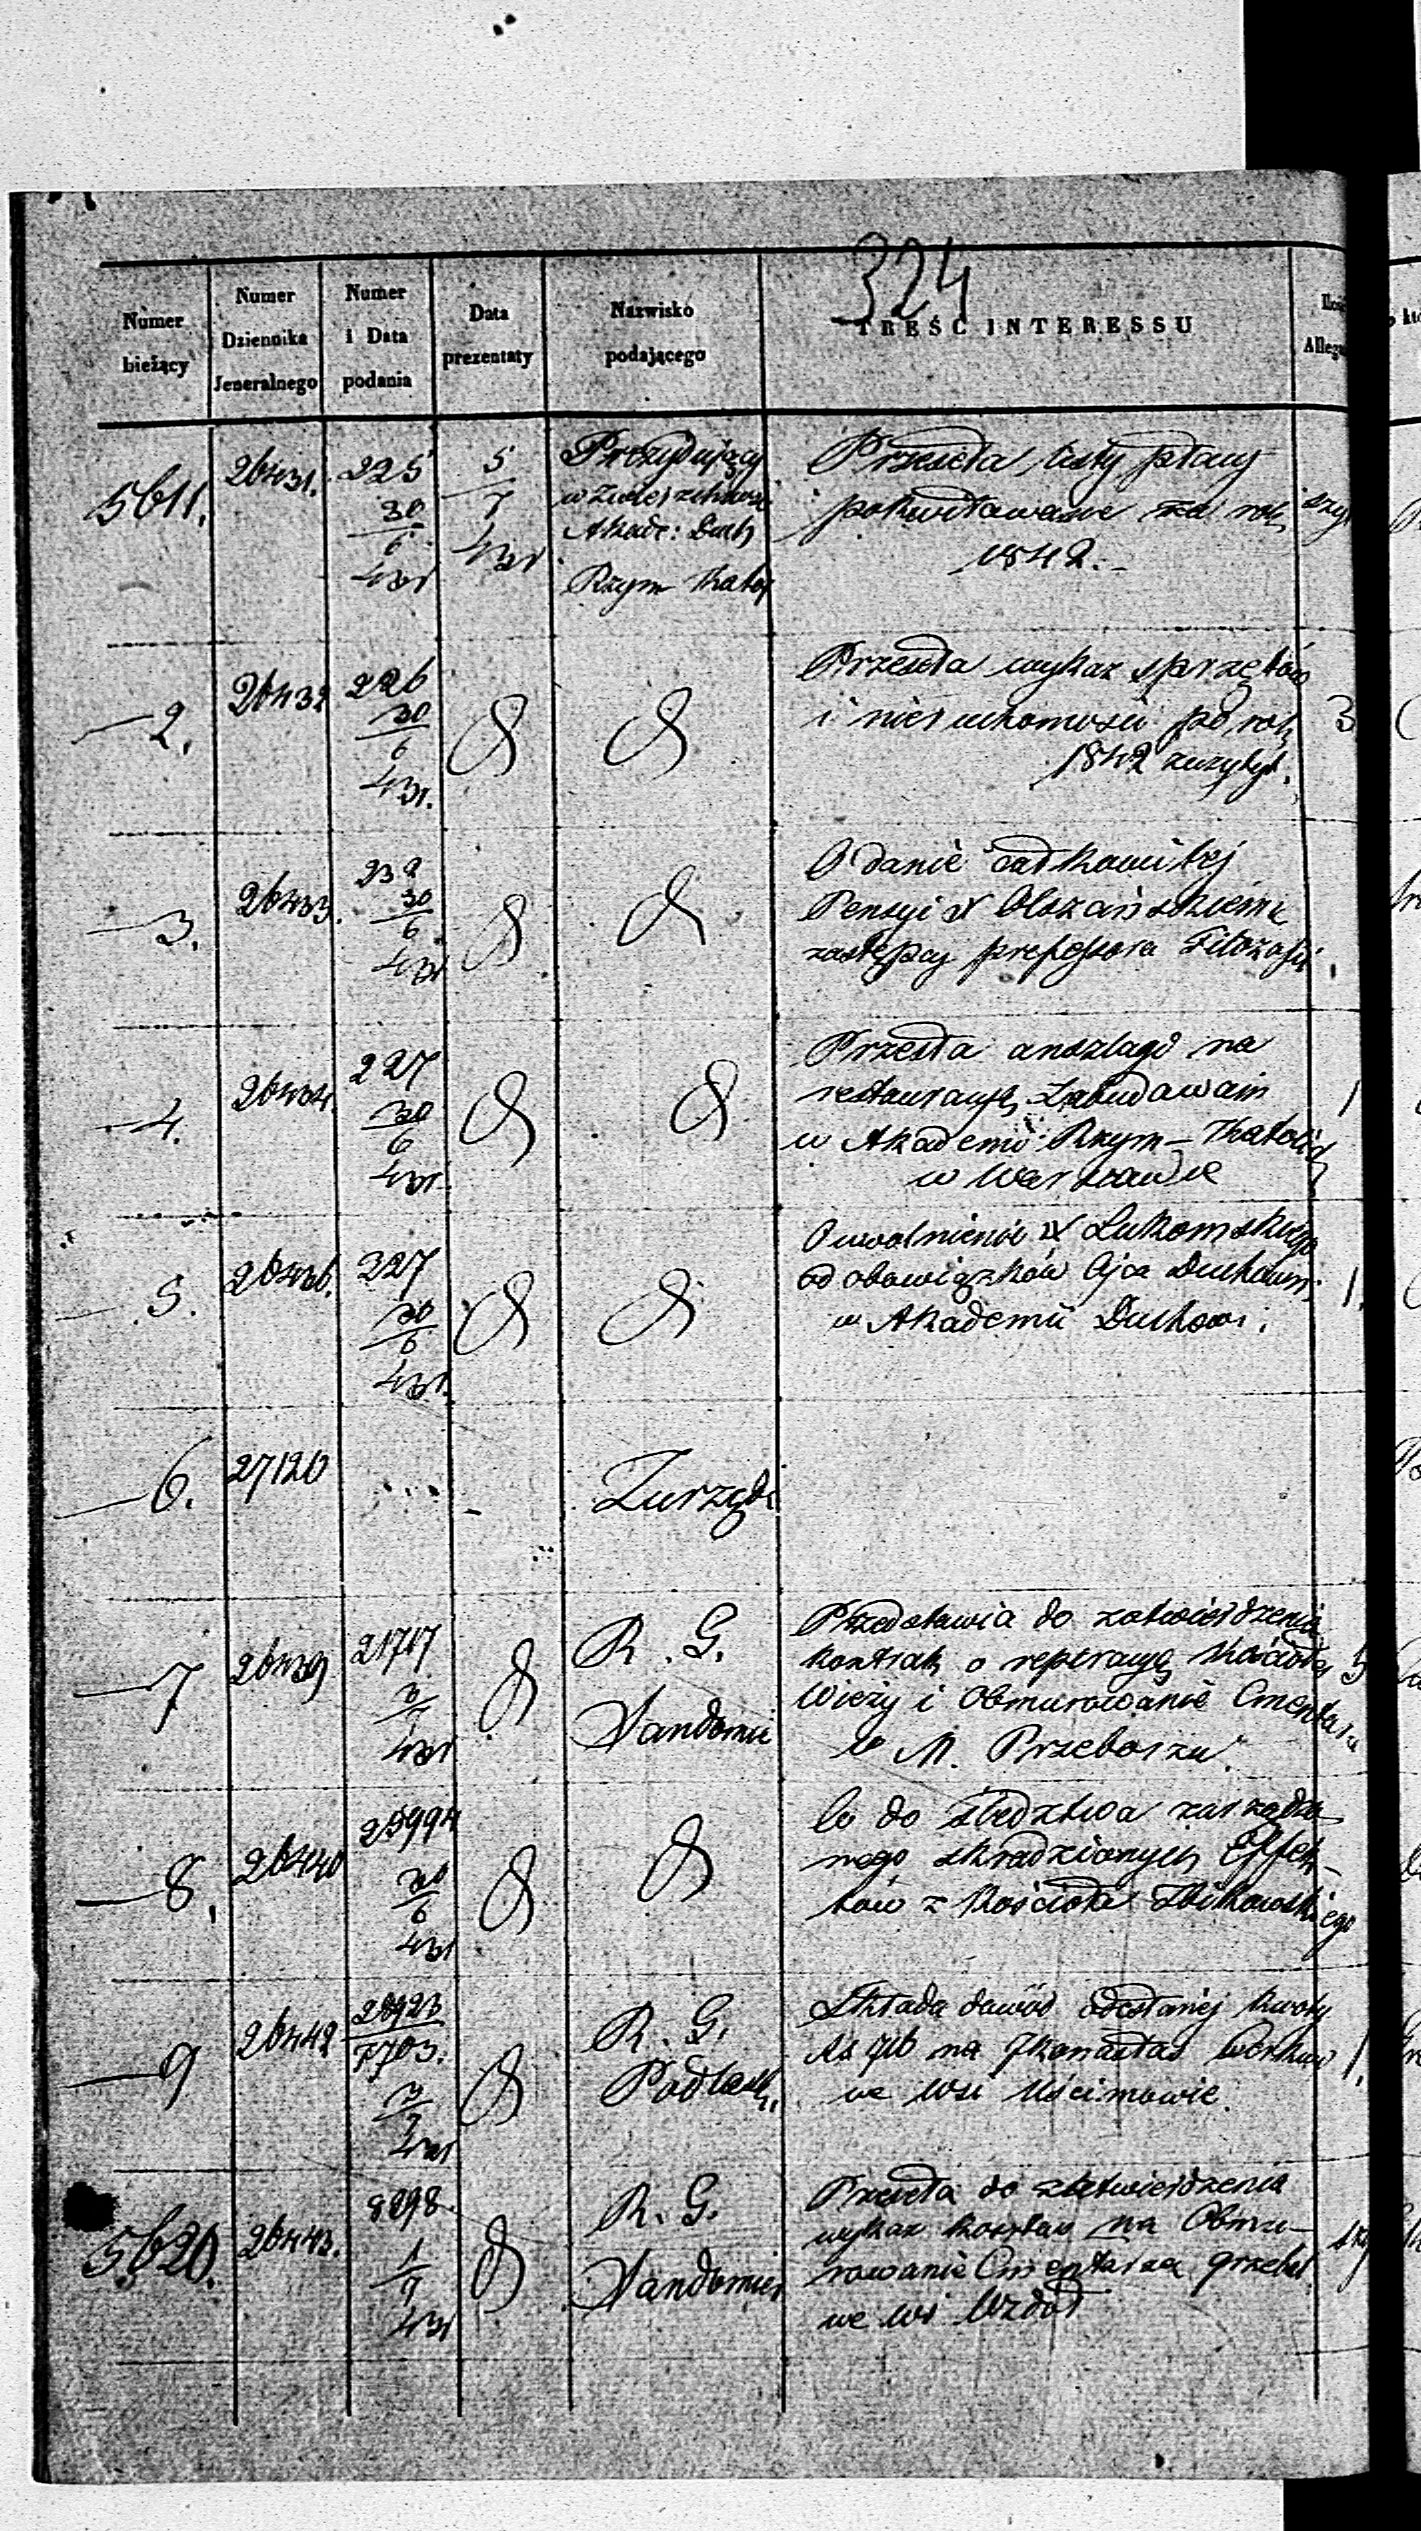 324
Numer bieżący
Numer Dziennika Jeneralnego
Numer i Data podania
Data prezentaty
Nazwisko podającego
TREŚĆ INTERESSU
5611.
26431.
225
30
6
431
5
7
431
Prezydujący
Akade: Duch
Rzym Katol
Przeseła listy płacy
pokwitowane za rok
1842.
2.
26432
226
30
6
431.
Przeseła wykaz sprzętów
i nieruchomości po rok
1842 zużyty.
3
3.
26433.
232
30
6
431
O danie całkowitej
Pensyi X Olszańskiemu
zastępcy professora Filozofii
4.
26434.
227
30
6
431.
Przesła anszlagi na
restauracyę Zabudowań
w Akademii Rzym-Katolick
w Warszawie
1
5.
26436.
227
30
6
431.
O uwolnienie X Łukomskiego
od obowiązków Ojca Duchown:
w Akademii Duchow:
1.
6.
27120
Z urzędu
7
26439
21717
3
7
431
R. G.
Sandomie
Przedstawia do zatwierdzenia
kontrakt o reperacyę Kościoła
Wieży i Obmurowanie Cmentarza
w M. Przedborzu
5
8.
26440
25994
30
6
431
Co do śledztwa zarządzo
nego skradzionych Effek-
tów z Kościoła Zbikowskiego
9
26442
28923
7703.
3
7
431
R. G.
Podlask.
Składa dowód odesłanej kwoty
we wsi Uścimowie.
1.
5620.
26443.
8298
1
7
431
R. G.
Sandomier
Przeseła do zatwierdzenia
wykaz kosztów na Obmu-
rowanie Cmentarza grzebal
we wsi Wzdół